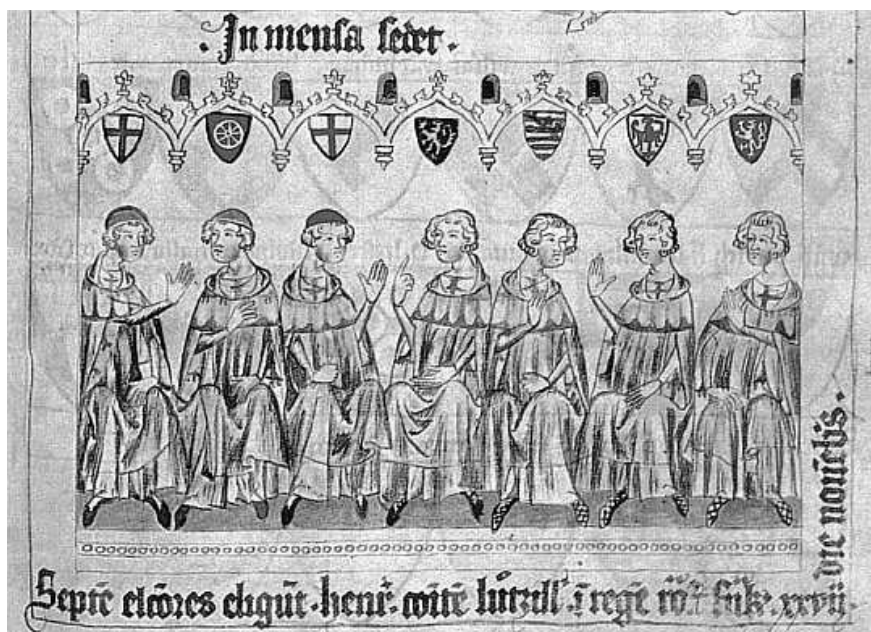 . In mensa sedet .
Septē elc̄ores eligūt . henr̄ . com̄itē lucz̄ill' . ī regē ro͞m . xxvii .
die novēb̄is .